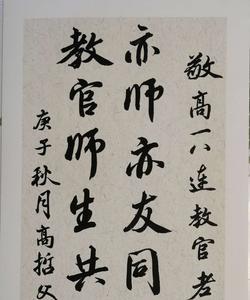 敬高一八连教官者
亦师亦友同
教官师生共
庚子秋月高哲父